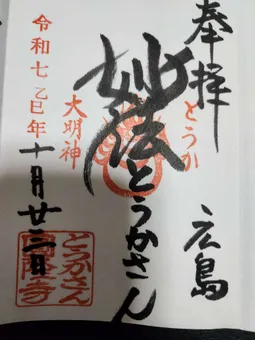 奉拝
とうか
広島
妙法とうかさん
大明神
令和七乙巳年
十月廿三日
とうかさん
圓隆寺